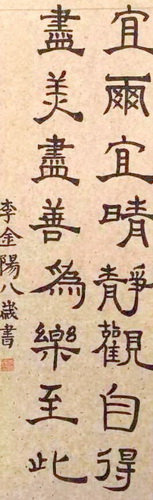 宜爾宜晴靜觀自得
盡美盡善為樂至此
李金陽八歲書